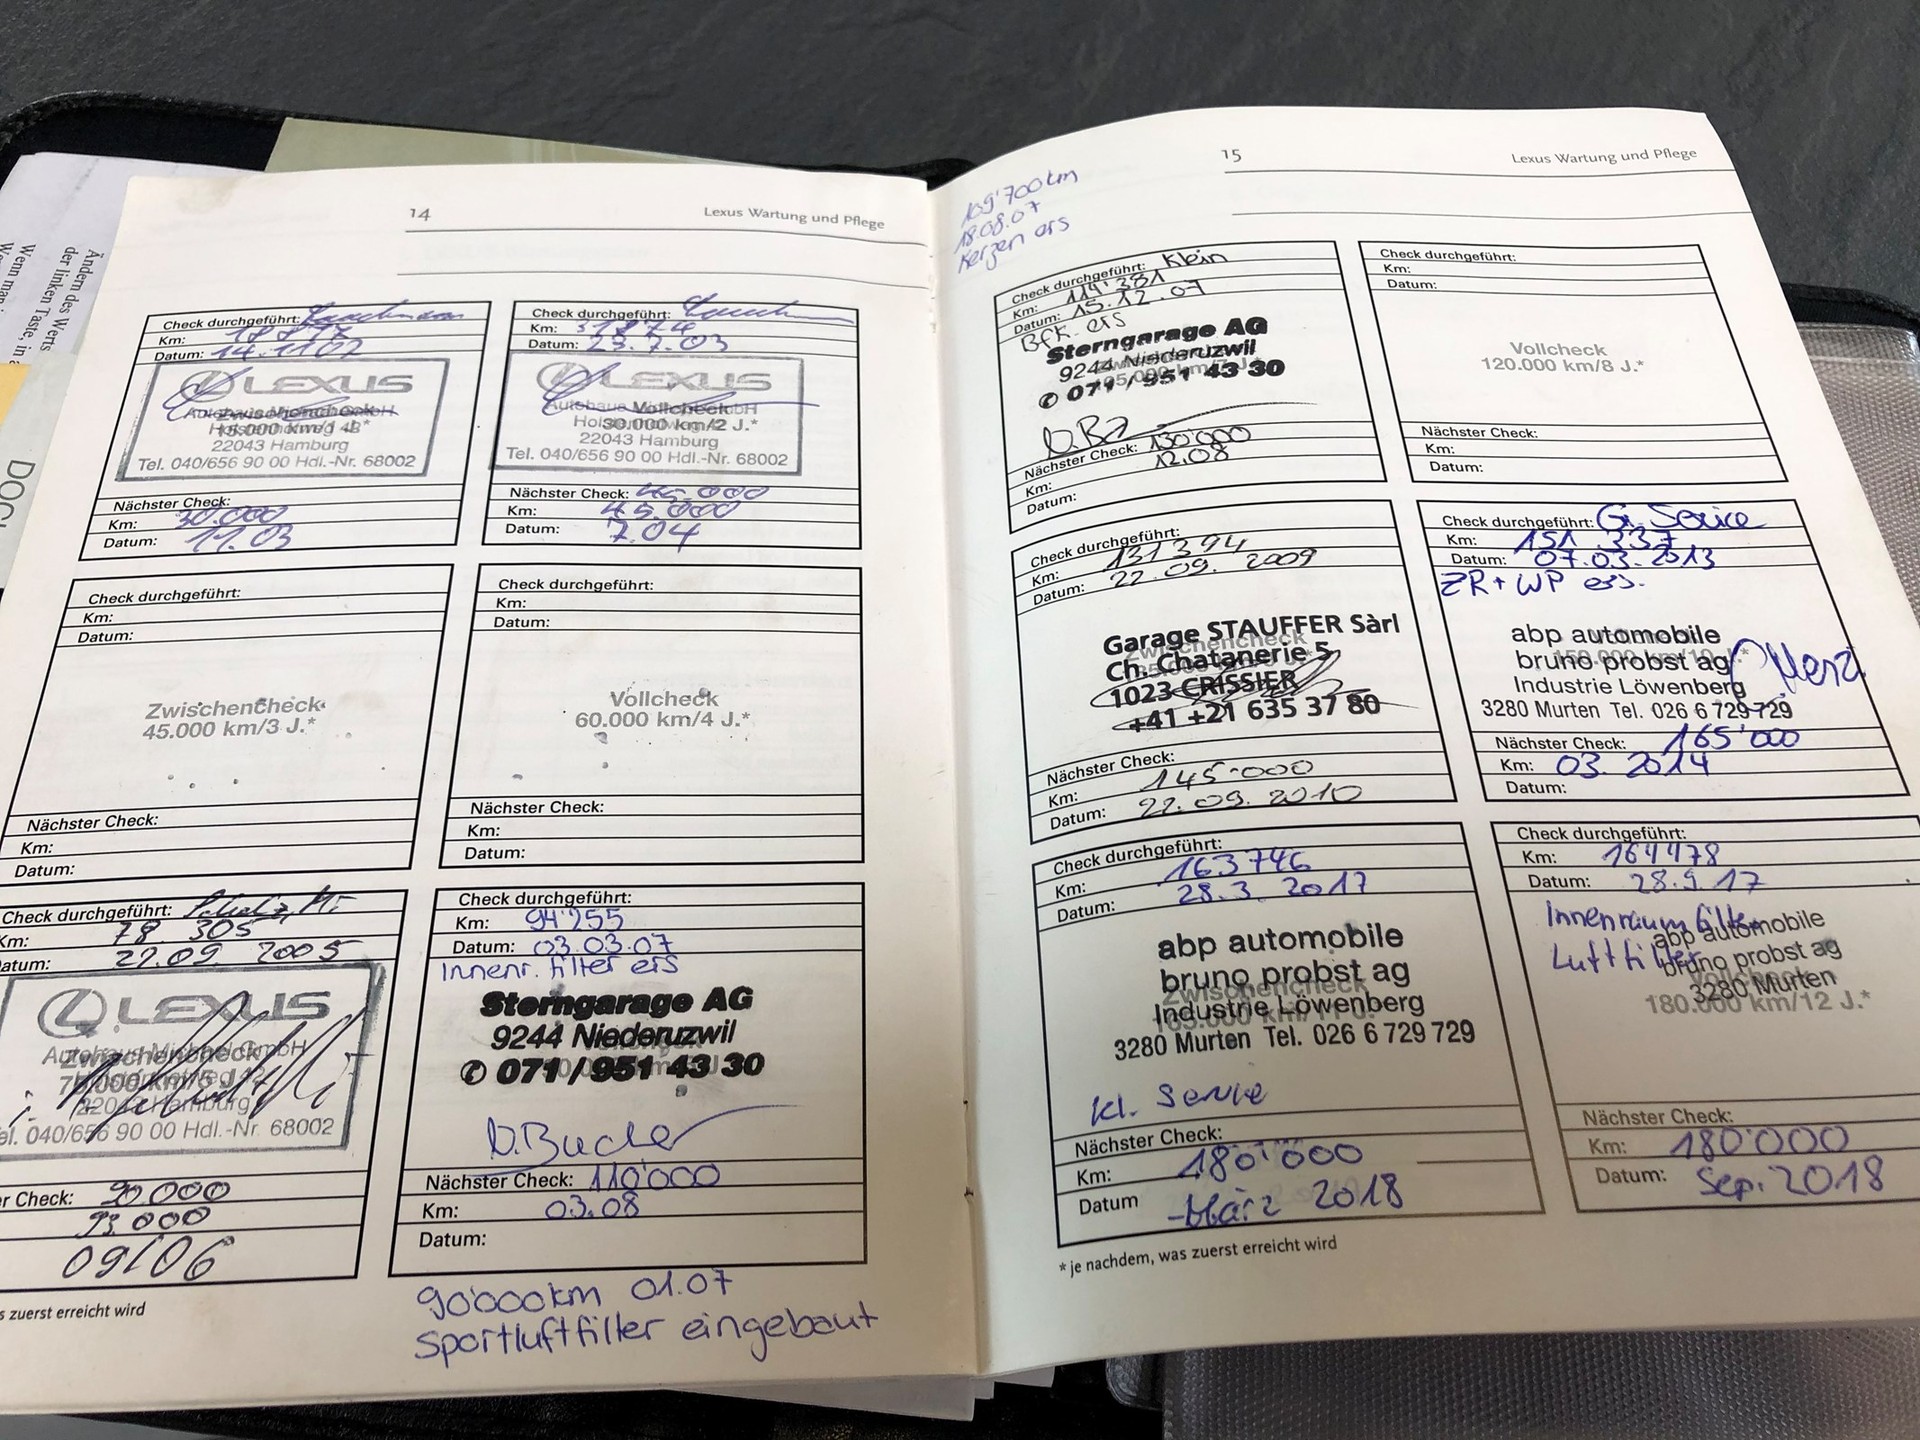 Ändern des Werts
der linken Taste, in
Wenn man
DOC
14
Lexus Wartung und Pflege
Check durchgeführt:
Km:
Datum: 14.11.02
LEXUS
Zwischencheck
15.000 km/1 J.*
22043 Hamburg
Tel. 040/656 90 00 Hdl.-Nr. 68002
Nächster Check:
Km: 30.000
Datum: 11.03
Check durchgeführt:
Km: 31874
Datum: 23.7.03
LEXUS
Autohaus
Vollcheck
30.000 km/2 J.*
22043 Hamburg
Tel. 040/656 90 00 Hdl.-Nr. 68002
Nächster Check: 45.000
Km: 45.000
Datum: 7.04
Check durchgeführt:
Km:
Datum:
Zwischencheck
45.000 km/3 J.*
Nächster Check:
Km:
Datum:
Check durchgeführt:
Km:
Datum:
Vollcheck
60.000 km/4 J.*
Nächster Check:
Km:
Datum:
Check durchgeführt:
Km: 78 305
Datum: 22.09. 2005
LEXUS
Autohaus Michael GmbH
Zwischencheck
75.000 km/5 J.*
22043 Hamburg
Tel. 040/656 90 00 Hdl.-Nr. 68002
er Check: 90.000
93.000
09/06
s zuerst erreicht wird
Check durchgeführt:
Km: 94'255
Datum: 03.03.07
Innenr. filter ers
Sterngarage AG
9244 Niederuzwil
071 / 951 43 30
D.Bucher
Nächster Check: 110'000
Km: 03.08
Datum:
90'000km 01.07
Sportluftfilter eingebaut
15
Lexus Wartung und Pflege
109'700km
18.08.07
Kerzen ers
Check durchgeführt: Klein
Km: 114'381
Datum: 15.12.07
Bfk. ers
Sterngarage AG
9244 Niederuzwil
071 / 951 43 30
Nächster Check: 130'000
12.08
Km:
Datum:
Check durchgeführt:
Km:
Datum:
Vollcheck
120.000 km/8 J.*
Nächster Check:
Km:
Datum:
Check durchgeführt:
Km: 131394
Datum: 22.09. 2009
Garage STAUFFER Sàrl
Zwischencheck
Ch. Chatanerie 5
1023 CRISSIER
+41 +21 635 37 80
Nächster Check:
Km: 145'000
Datum: 22.09.2010
Check durchgeführt: Gr. Service
Km: 151.337
Datum: 07.03.2013
ZR + WP ers.
abp automobile
bruno probst ag
Industrie Löwenberg
3280 Murten Tel. 026 6 729 729
Nächster Check: 165'000
Km: 03. 2014
Datum:
Check durchgeführt:
Km: 163746
Datum: 28.3. 2017
abp automobile
bruno probst ag
Zwischencheck
Industrie Löwenberg
3280 Murten Tel. 026 6 729 729
kl. Service
Nächster Check:
Km: 180'000
Datum März 2018
* je nachdem, was zuerst erreicht wird
Check durchgeführt:
Km: 164478
Datum: 28.9.17
Innenraumfilter
Luftfilter
abp automobile
bruno probst ag
3280 Murten
Vollcheck
180.000 km/12 J.*
Nächster Check:
Km: 180'000
Datum: Sep. 2018